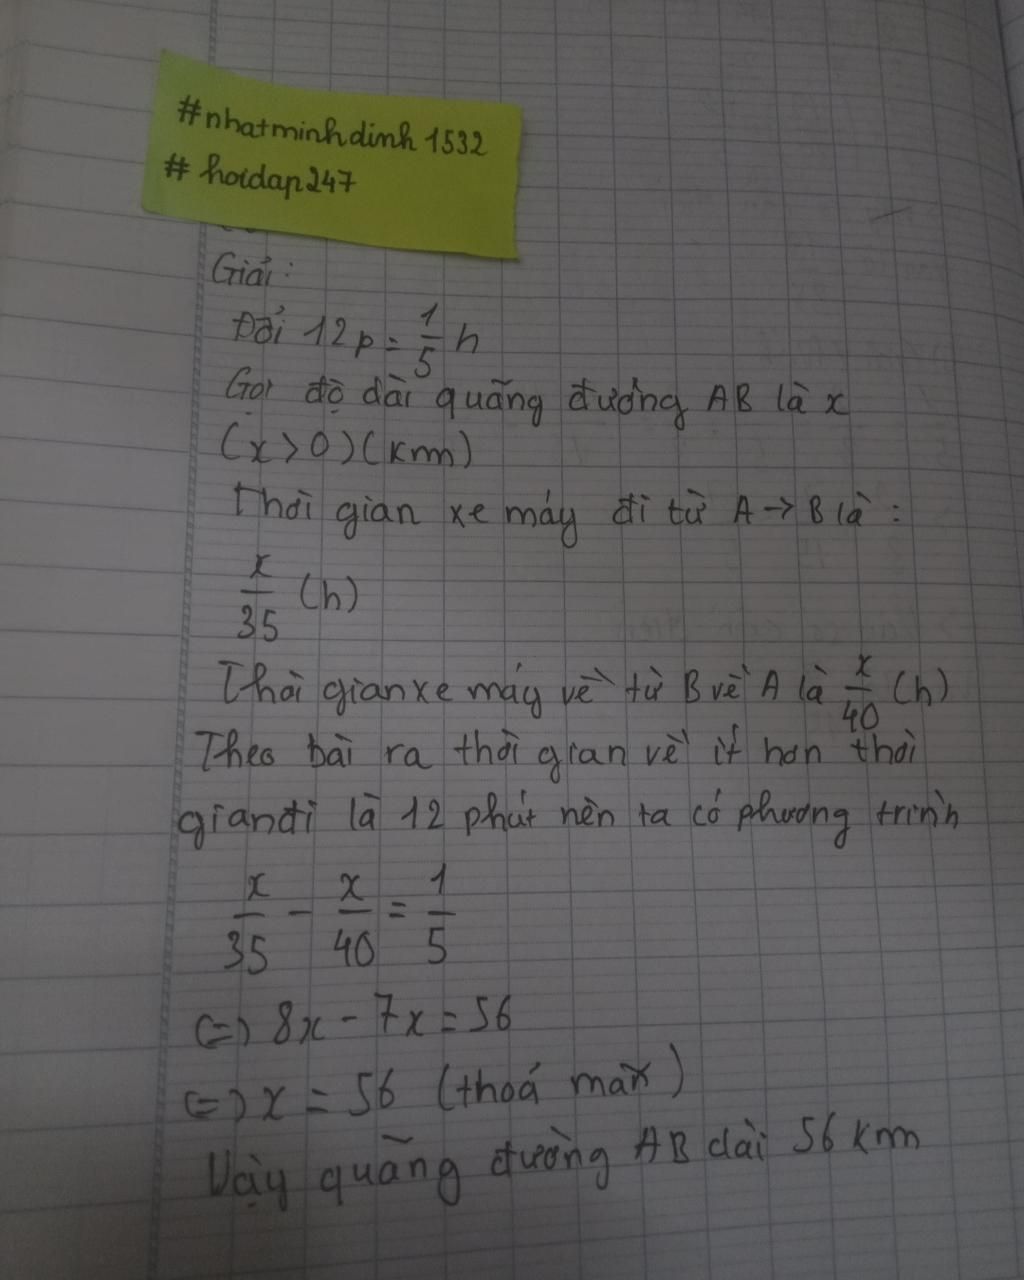 #nhatminhdinh1532
#hoidap247
Giải:
Đổi 12p = 1/5 h
Gọi độ dài quãng đường AB là x
(x > 0) (km)
Thời gian xe máy đi từ A → B là:
x/35 (h)
Thời gian xe máy về từ B về A là x/40 (h)
Theo bài ra thời gian về ít hơn thời
gian đi là 12 phút nên ta có phương trình
x/35 - x/40 = 1/5
<=> 8x - 7x = 56
<=> x = 56 (thoả mãn)
Vậy quãng đường AB dài 56 km